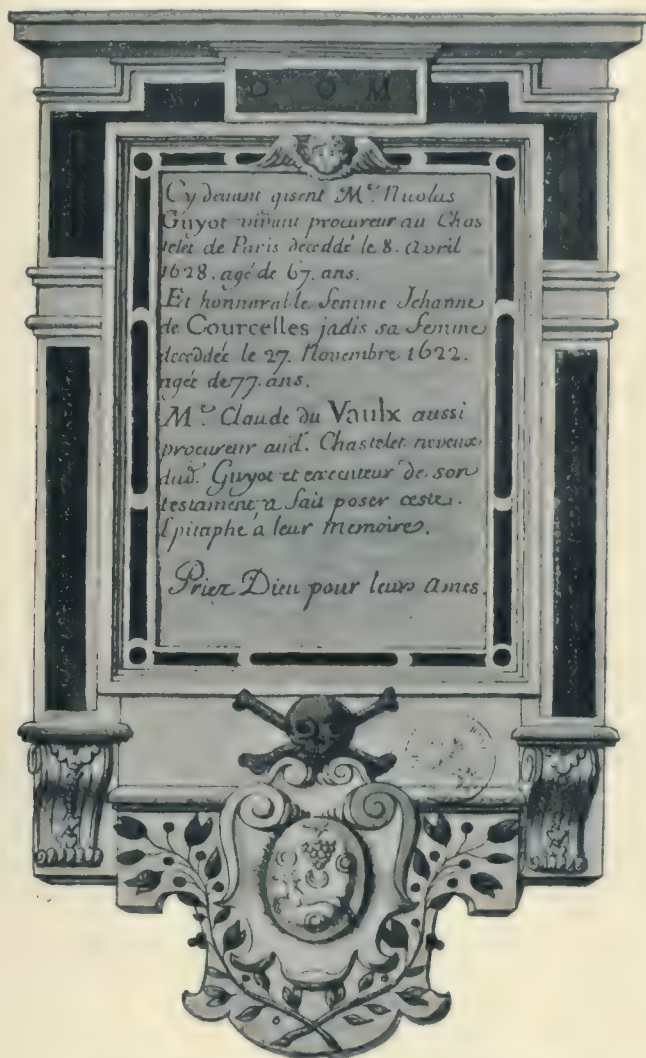 D O M
Cy deuant gisent M.e Nicolas
Guyot viuant procureur au Chas
telet de Paris deceddé le 8. Avril
1628. agé de 67. ans.
Et honnorable femme Jehanne
de Courcelles jadis sa femme
deceddée le 27. Novembre 1622.
agée de 77. ans.
M.e Claude du Vaulx aussi
procureur aud. Chastelet neveux
dud. Guyot et executeur de son
testament a fait poser ceste
Epitaphe a leur memoire.
Priez Dieu pour leurs ames.